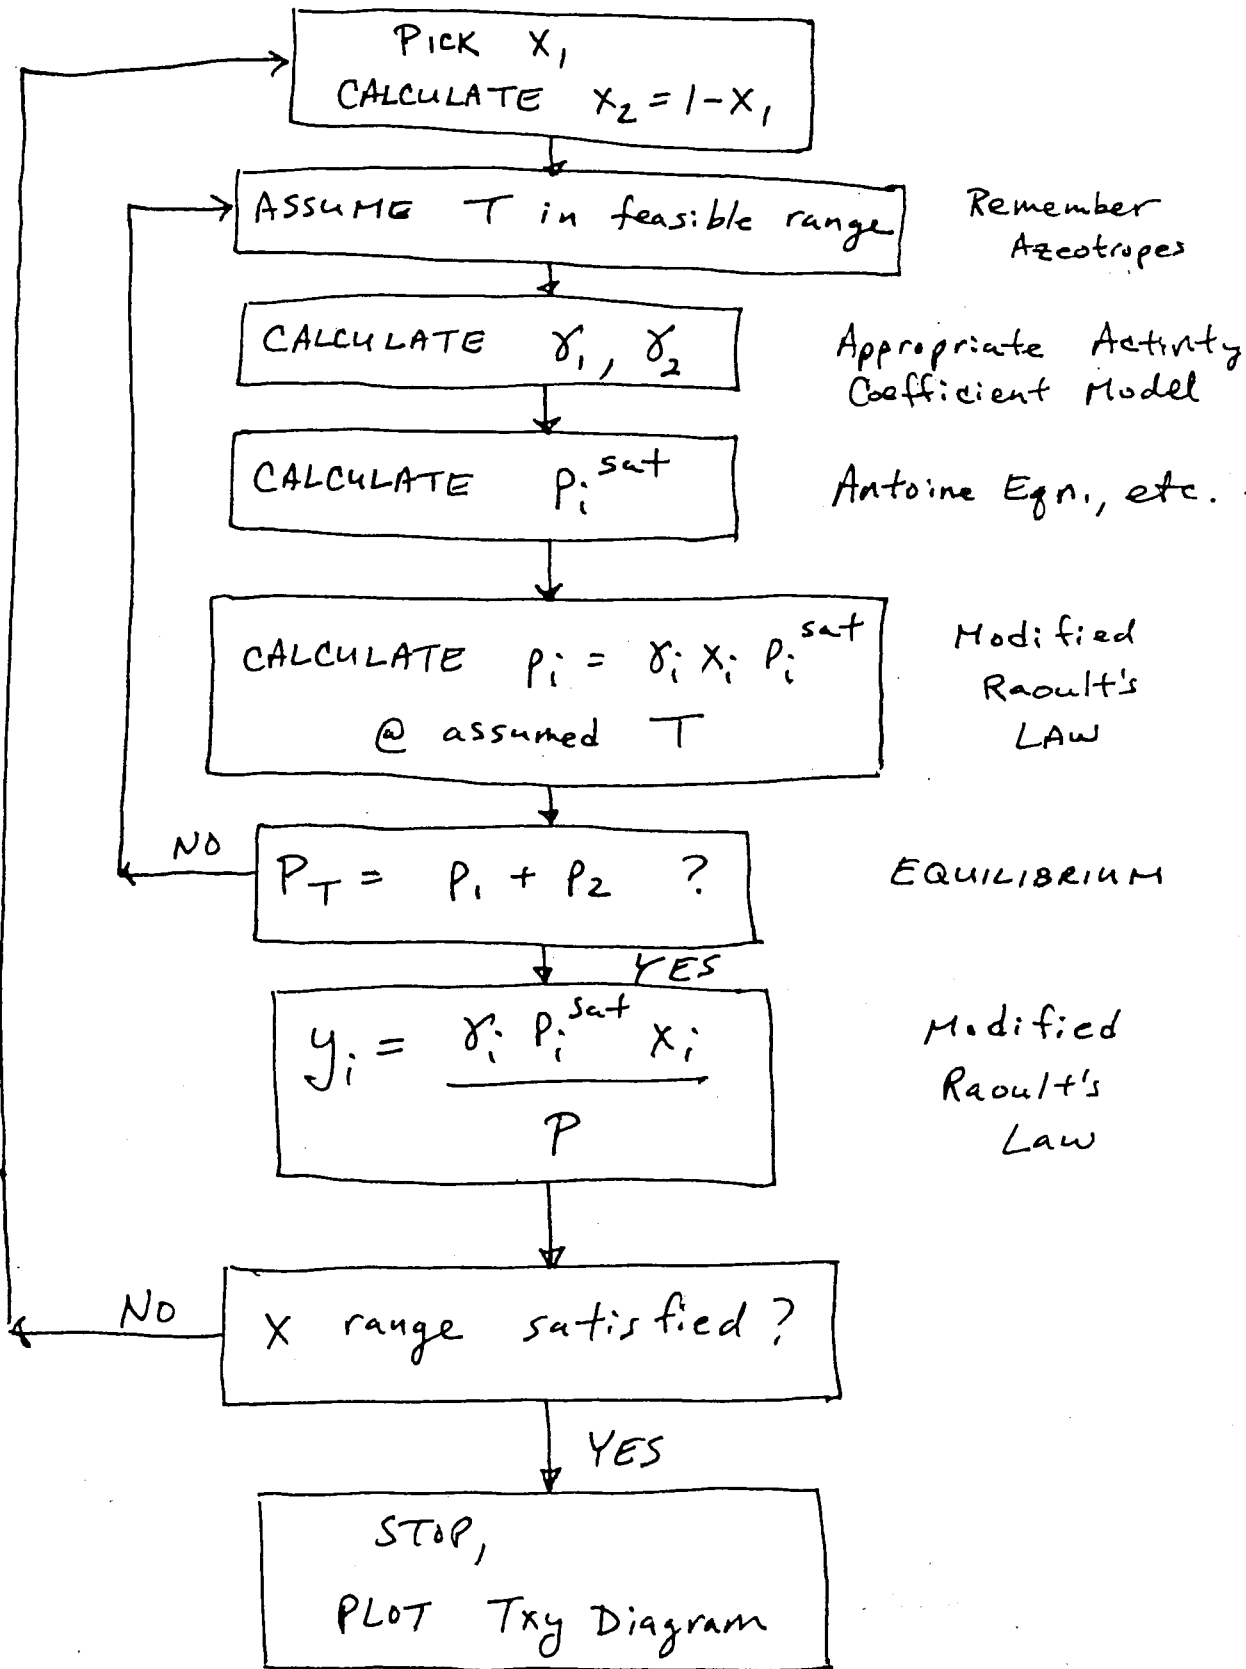 PICK X₁
CALCULATE X₂ = 1 - X₁
ASSUME T in feasible range
Remember
Azeotropes
CALCULATE γ₁, γ₂
Appropriate Activity
Coefficient Model
CALCULATE Pᵢ^sat
Antoine Eqn., etc.
CALCULATE pᵢ = γᵢ Xᵢ Pᵢ^sat
@ assumed T
Modified
Raoult's
LAW
NO
P_T = P₁ + P₂ ?
EQUILIBRIUM
YES
yᵢ = γᵢ Pᵢ^sat Xᵢ
P
Modified
Raoult's
Law
NO
X range satisfied?
YES
STOP,
PLOT Txy Diagram